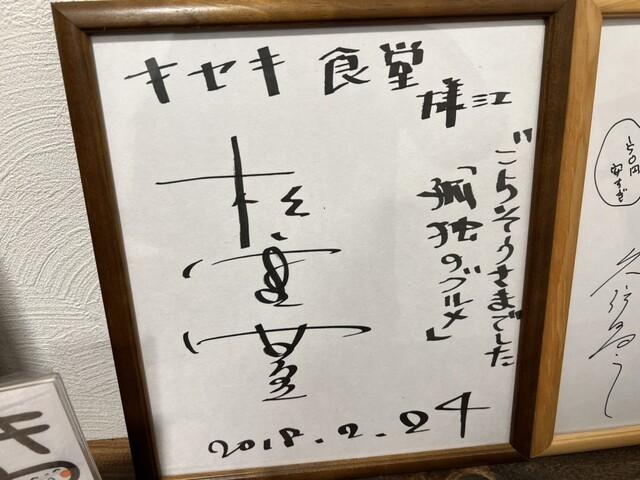 キセキ 食堂
様江
ごちそうさまでした
「孤独のグルメ」
松重豊
2018.2.24
安すぎ